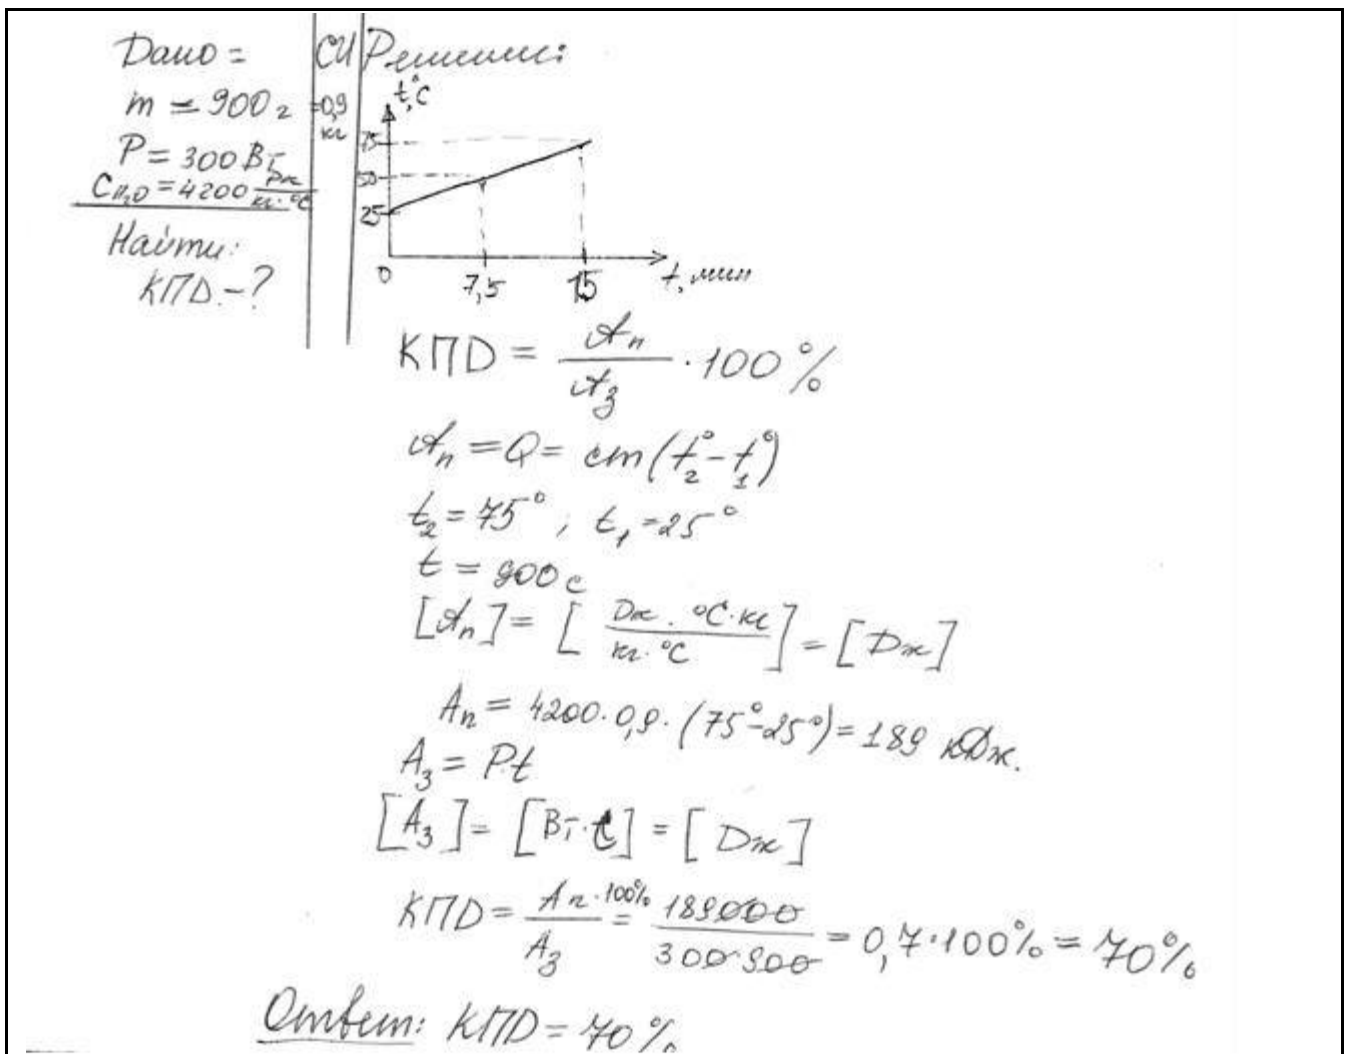 Дано = СИ Решение:
m = 900 г =0,9 кг
P = 300 Вт
C H₂O = 4200 Дж/кг·°C
Найти:
КПД - ?
t,°C
75
50
25
0 7,5 15 t, мин
КПД = Aп/Aз · 100 %
Aп = Q = cm(t°₂ - t°₁)
t₂ = 75°, t₁ = 25°
t = 900 с
[Aп] = [Дж · °C·кг / кг·°C] = [Дж]
Aп = 4200 · 0,9 · (75° - 25°) = 189 кДж.
Aз = Pt
[Aз] = [Вт·с] = [Дж]
КПД = Aп · 100% / Aз = 189000 / 300·900 = 0,7·100% = 70%
Ответ: КПД = 70 %